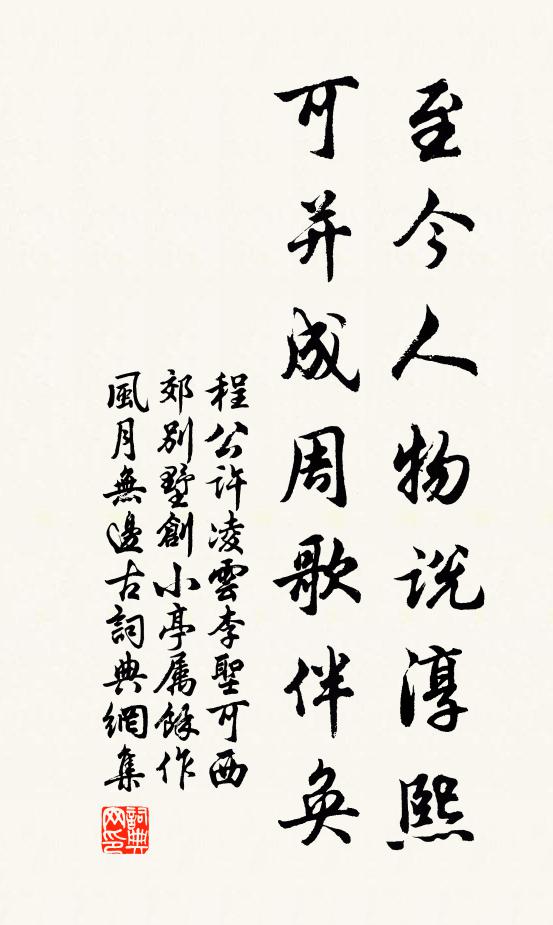 至今人物说淳熙
可并成周歌伴奂
程公许凌雲李聖可西
郊別墅創小亭属餘作
風月無邊古詞典網集
詞典
网印